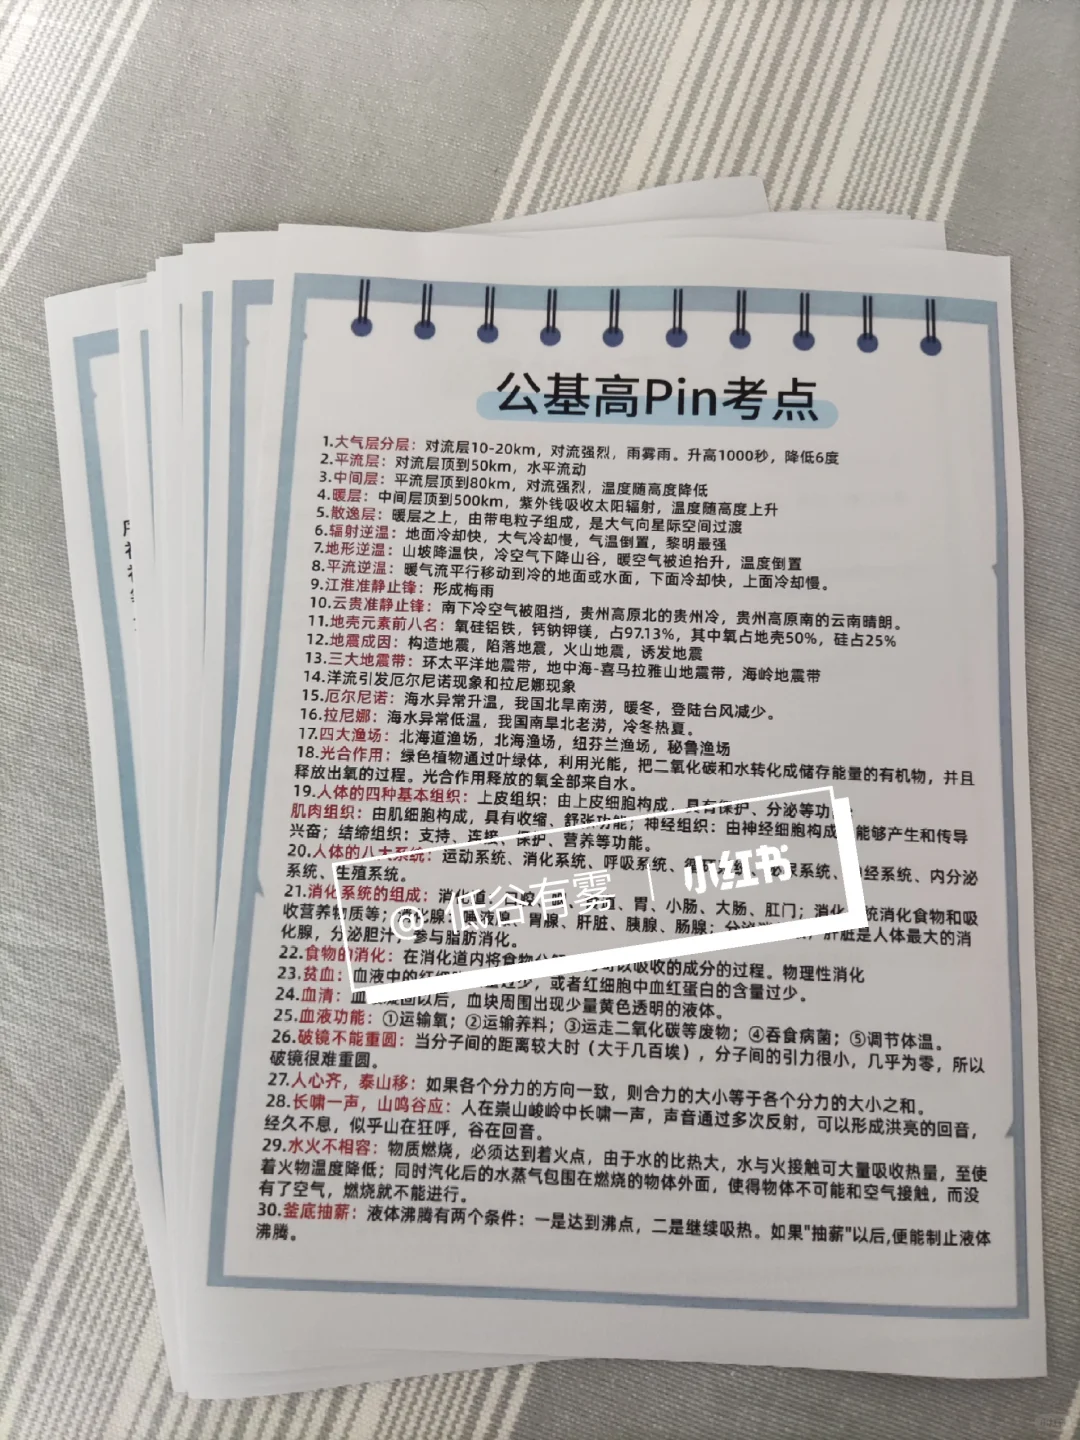 公基高Pin考点
1.大气层分层：对流层10-20km，对流强烈，雨雾雨。升高1000秒，降低6度
2.平流层：对流层顶到50km，水平流动
3.中间层：平流层顶到80km，对流强烈，温度随高度降低
4.暖层：中间层顶到500km，紫外钱吸收太阳辐射，温度随高度上升
5.散逸层：暖层之上，由带电粒子组成，是大气向星际空间过渡
6.辐射逆温：地面冷却快，大气冷却慢，气温倒置，黎明最强
7.地形逆温：山坡降温快，冷空气下降山谷，暖空气被迫抬升，温度倒置
8.平流逆温：暖气流平行移动到冷的地面或水面，下面冷却快，上面冷却慢。
9.江淮准静止锋：形成梅雨
10.云贵准静止锋：南下冷空气被阻挡，贵州高原北的贵州冷，贵州高原南的云南晴朗。
11.地壳元素前八名：氧硅铝铁，钙钠钾镁，占97.13%，其中氧占地壳50%，硅占25%
12.地震成因：构造地震，陷落地震，火山地震，诱发地震
13.三大地震带：环太平洋地震带，地中海-喜马拉雅山地震带，海岭地震带
14.洋流引发厄尔尼诺现象和拉尼娜现象
15.厄尔尼诺：海水异常升温，我国北旱南涝，暖冬，登陆台风减少。
16.拉尼娜：海水异常低温，我国南旱北老涝，冷冬热夏。
17.四大渔场：北海道渔场，北海渔场，纽芬兰渔场，秘鲁渔场
18.光合作用：绿色植物通过叶绿体，利用光能，把二氧化碳和水转化成储存能量的有机物，并且
释放出氧的过程。光合作用释放的氧全部来自水。
19.人体的四种基本组织：上皮组织：由上皮细胞构成，具有保护、分泌等功
肌肉组织：由肌细胞构成，具有收缩、舒张功能；神经组织：由神经细胞构成 能够产生和传导
兴奋；结缔组织：支持、连接、保护、营养等功能。
20.人体的八大系统：运动系统、消化系统、呼吸系统、 系统、 系统、 经系统、内分泌
系统、生殖系统。
21.消化系统的组成：消化道： 胃、小肠、大肠、肛门；消化 统消化食物和吸
收营养物质等；消化腺：唾液腺、胃腺、肝脏、胰腺、肠腺； 肝脏是人体最大的消
化腺，分泌胆汁 参与脂肪消化。
22.食物的消化：在消化道内将食物分 可以吸收的成分的过程。物理性消化
23.贫血：血液中的红细 过少，或者红细胞中血红蛋白的含量过少。
24.血清：血 凝固以后，血块周围出现少量黄色透明的液体。
25.血液功能：①运输氧；②运输养料；③运走二氧化碳等废物；④吞食病菌；⑤调节体温。
26.破镜不能重圆：当分子间的距离较大时（大于几百埃），分子间的引力很小，几乎为零，所以
破镜很难重圆。
27.人心齐，泰山移：如果各个分力的方向一致，则合力的大小等于各个分力的大小之和。
28.长啸一声，山鸣谷应：人在崇山峻岭中长啸一声，声音通过多次反射，可以形成洪亮的回音，
经久不息，似乎山在狂呼，谷在回音。
29.水火不相容：物质燃烧，必须达到着火点，由于水的比热大，水与火接触可大量吸收热量，至使
着火物温度降低；同时汽化后的水蒸气包围在燃烧的物体外面，使得物体不可能和空气接触，而没
有了空气，燃烧就不能进行。
30.釜底抽薪：液体沸腾有两个条件：一是达到沸点，二是继续吸热。如果"抽薪"以后,便能制止液体
沸腾。
@低谷有雾 | 小红书